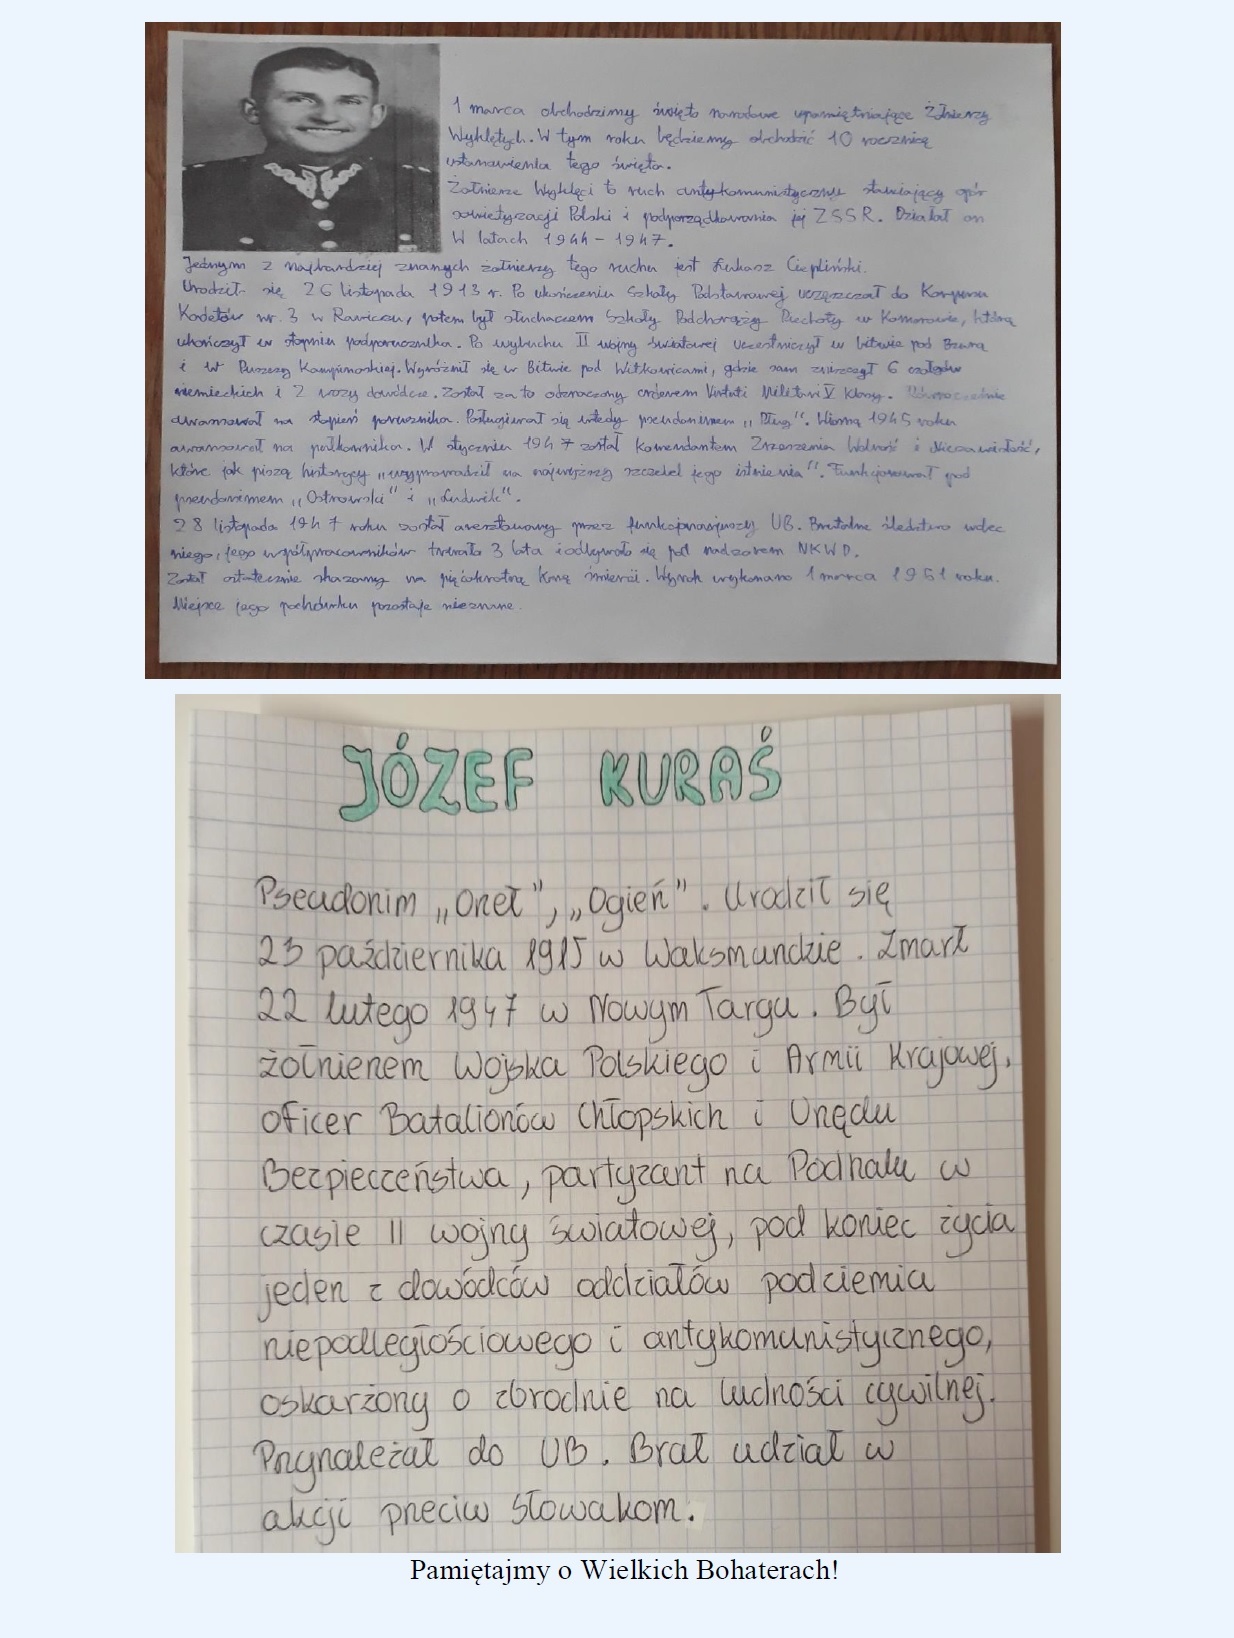 1 marca obchodzimy święto narodowe upamiętniające Żołnierzy
Wyklętych. W tym roku będziemy obchodzić 10 rocznicę
ustanowienia tego święta.
Żołnierze Wyklęci to ruch antykomunistyczny stawiający opór
sowietyzacji Polski i podporządkowania jej ZSSR. Działał on
W latach 1944 - 1947.
Jednym z najbardziej znanych żołnierzy tego ruchu jest Łukasz Ciepliński.
Urodził się 26 listopada 1913 r. Po ukończeniu Szkoły Podstawowej uczęszczał do Korpusu
Kadetów nr. 3 w Rawiczu, potem był słuchaczem Szkoły Podchorąży Piechoty w Komorowie, którą
ukończył w stopniu podporucznika. Po wybuchu II wojny światowej uczestniczył w bitwie pod Bzurą
i w Puszczy Kampinoskiej. Wyróżnił się w Bitwie pod Witkowicami, gdzie sam zniszczył 6 czołgów
niemieckich i 2 wozy dowódcze. Został za to odznaczony orderem Virtuti Militari V klasy. Równocześnie
awansował na stopień porucznika. Posługiwał się wtedy pseudonimem „Pług". Wiosną 1945 roku
awansował na pułkownika. W styczniu 1947 został Komendantem Zrzeszenia Wolność i Niezawisłość,
które jak piszą historycy „wyprowadził na najwyższy szczebel jego istnienia". Funkcjonował pod
pseudonimem „Ostrowski" i „Ludwik".
28 listopada 1947 roku został aresztowany przez funkcjonariuszy UB. Brutalne śledztwo wobec
niego, jego współpracowników trwało 3 lata i odbywało się pod nadzorem NKWD.
Został ostatecznie skazany na pięciokrotną karę śmierci. Wyrok wykonano 1 marca 1951 roku.
Miejsce jego pochówku pozostaje nieznane.
JÓZEF KURAŚ
Pseudonim „Orzeł", „Ogień". Urodził się
23 października 1915 w Waksmundzie. Zmarł
22 lutego 1947 w Nowym Targu. Był
żołnierzem Wojska Polskiego i Armii Krajowej,
oficer Batalionów Chłopskich i Urzędu
Bezpieczeństwa, partyzant na Podhalu w
czasie II wojny światowej, pod koniec życia
jeden z dowódców oddziałów podziemia
niepodległościowego i antykomunistycznego,
oskarżony o zbrodnie na ludności cywilnej.
Przynależał do UB. Brał udział w
akcji przeciw Słowakom.
Pamiętajmy o Wielkich Bohaterach!